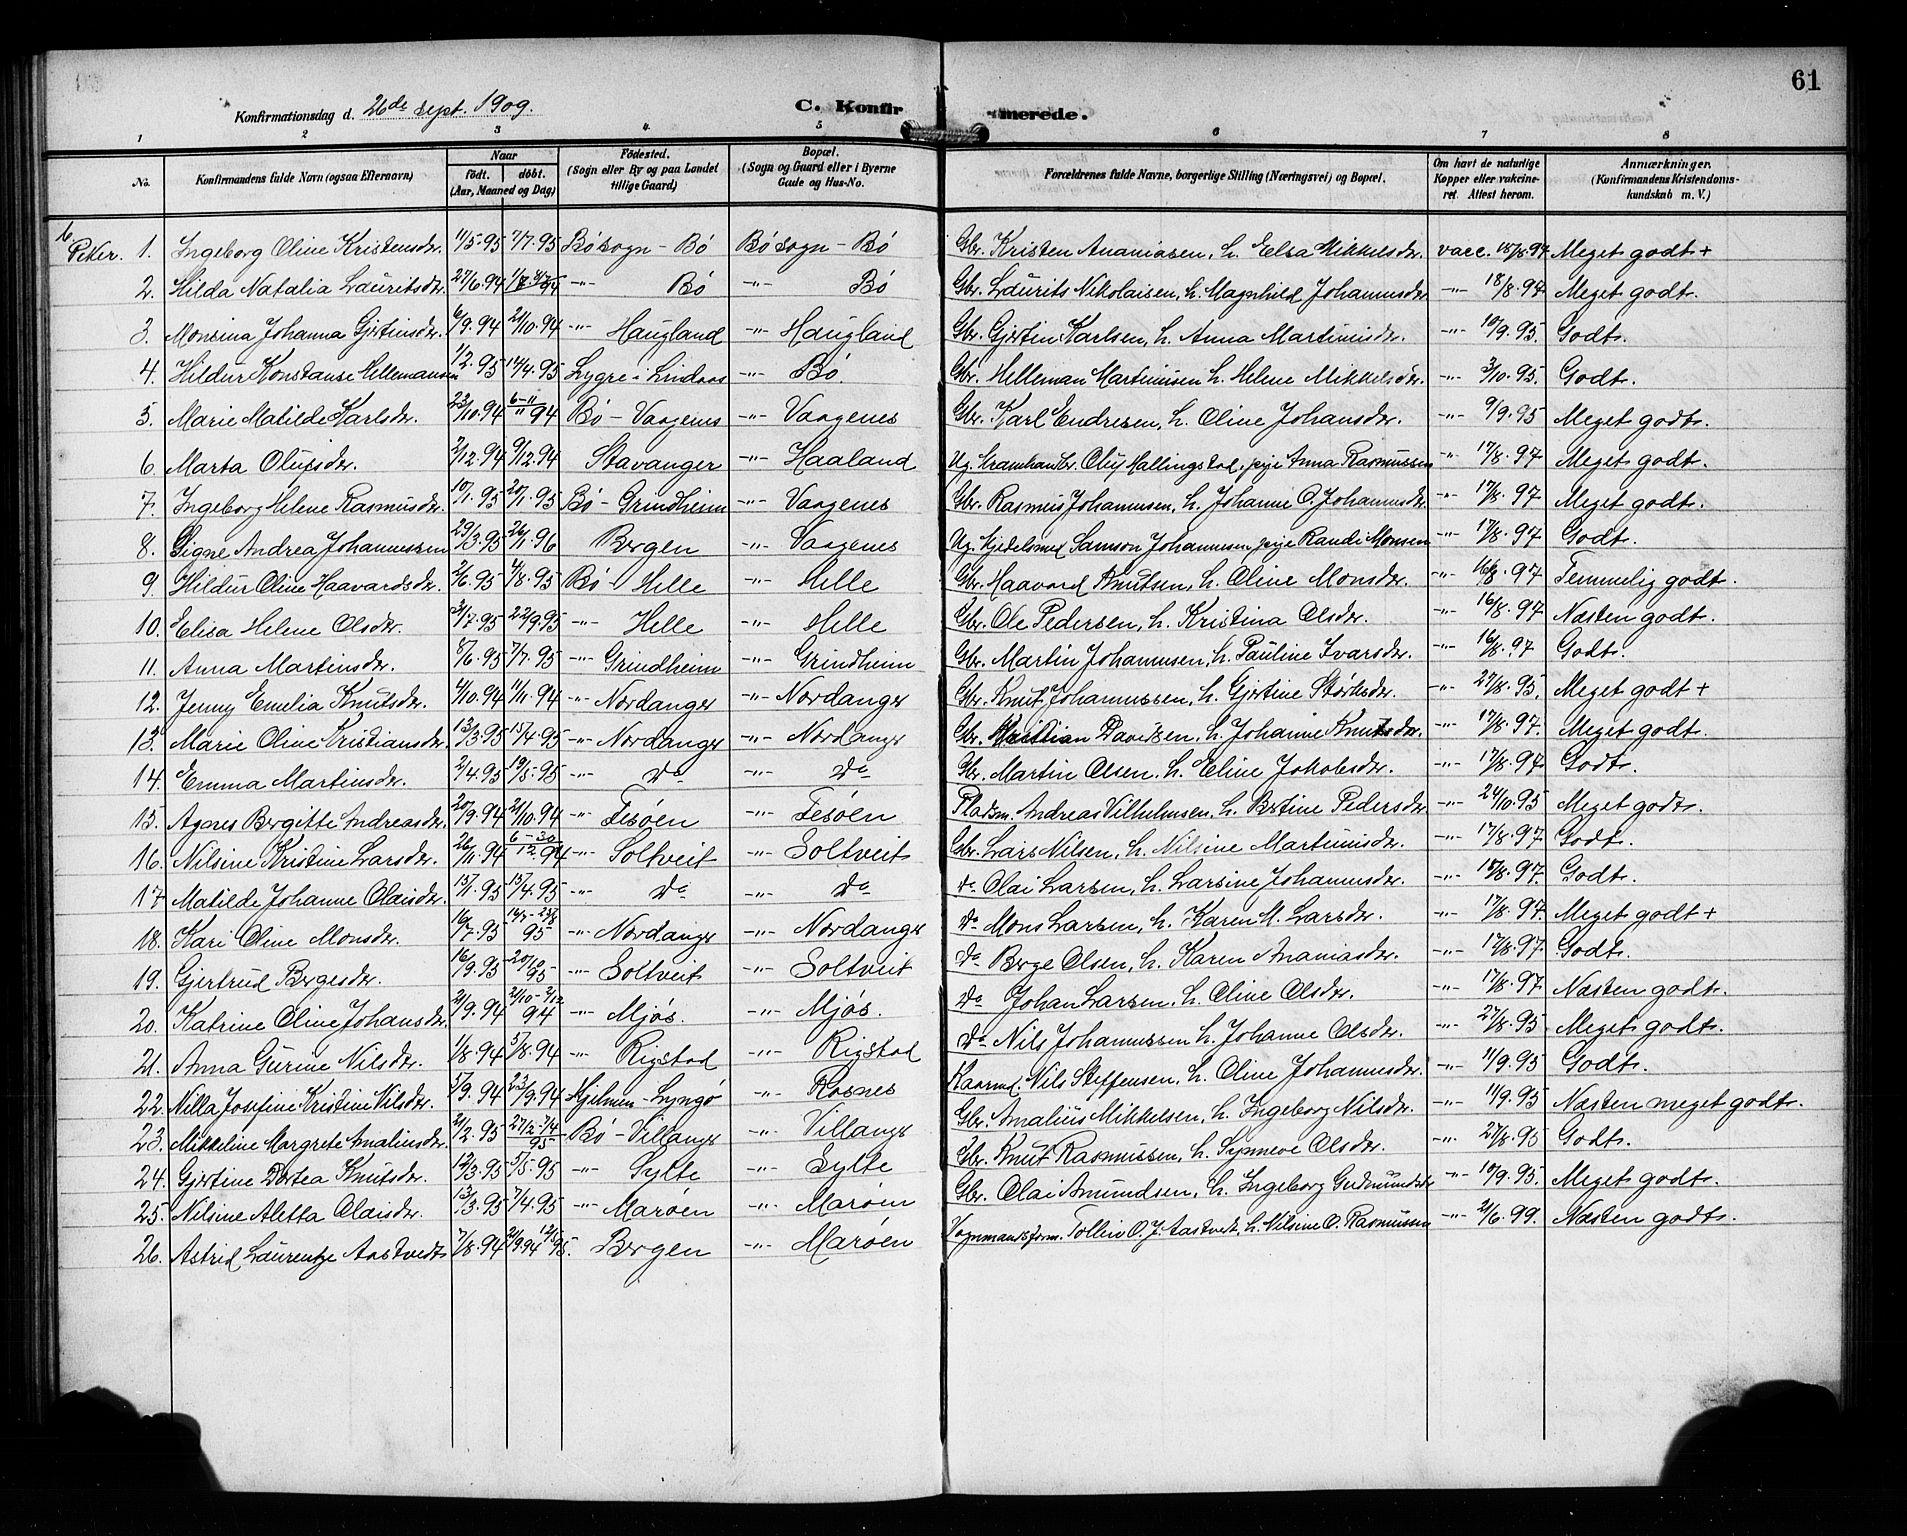 61
Konfirmationsdag d. 26de sept. 1909.
C. Konfirmerede.
1 2 3 4. 5 6 7 8
No. Konfirmandens fulde Navn (ogsaa Efternavn) Naar födt. döbt. (Aar, Maaned og Dag) Födested. (Sogn eller By og paa Landet tillige Gaard) Bopæl. (Sogn og Gaard eller i Byerne Gade og Hus-No. Forældrenes fulde Navne, borgerlige Stilling (Næringsvei) og Bopæl. Om havt de naturlige Kopper eller vakcineret. Attest herom. Anmærkninger. (Konfirmandens Kristendomskundskab m. V.)
Piker. 1. Ingeborg Oline Kristensdr. 11/5.95 7/7.95 Bö sogn - Bö Bö sogn - Bö Gbr. Kristen Ananiasen, h. Elsa Mikkelsdr. vacc. 18/8.97 Meget godt +
2. Hilda Natalia Lauritsdr. 27/6.94 -"- Bö -"- Bö Gbr. Laurits Nikolaisen, h. Magnhild Johannesdr -"- 18/8.97 Meget godt.
3. Monsina Johanna Gjertinsdr. 6/9.94 21/10.94 -"- Haugland -"- Haugland Gbr. Gjertin Karlsen, h. Anna Martinusdr. -"- 10/9.95. Godt.
4. Hildur Konstanse Hellemansen 1/2.95 14/4.95 Lygre i Lindaas -"- Bö. Gbr. Helleman Martinusen h. Helene Mikkelsdr. -"- 3/10.95. Godt.
5. Marie Matilde Karlsdr. 23/10.94 6-11/11 94 Bö - Vaagenes -"- Vaagenes Gbr. Karl Endresen, h. Oline Johansdr. -"- 9/9.95 Meget godt.
6. Marta Olufsdr. 2/12.94 9/12.94 Stavanger -"- Haaland Ug. Oluf Hallingstad, pige Anna Rasmussen -"- 17/8.97 Meget godt.
7. Ingeborg Helene Rasmusdr. 10/1.95 20/1.95 Bö - Grindheim -"- Vaagenes Gbr. Rasmus Johannesen, h. Johanne O. Johannesdr -"- 17/8.97 Meget godt.
8. Signe Andrea Johannessen 29/3.95 26/1.96 Bergen -"- Vaagenes Ug. Kjedelsmed Samson Johannesen, pige Randi Monsen -"- 17/8.97 Godt.
9. Hildur Oline Haavardsdr. 2/6.95 4/8.95 Bö - Helle -"- Helle Gbr. Haavard Knutsen, h. Oline Monsdr. -"- 16/8.97 Temmelig godt.
10. Elisa Helene Olsdr. 3/7.95 22/9.95 -"- Helle -"- Helle Gbr. Ole Pedersen, h. Kristina Olsdr. -"- 16/8.97 Næsten godt.
11. Anna Martinsdr. 8/6.95 7/7.95 -"- Grindheim -"- Grindheim Gbr. Martin Johannesen, h. Pauline Ivarsdr. -"- 16/8.97 Godt.
12. Jenny Emelia Knutsdr. 4/10.94 11/11.94 -"- Nordanger -"- Nordanger Gbr. Knut Johannessen, h. Gjertine Störksdr. -"- 27/8.95. Meget godt +
13. Marie Oline Kristiansdr. 13/3.95 15/4.95 -"- Nordanger -"- Nordanger Gbr. Kristian Davidsen, h. Johanne Knutsdr. -"- 17/8.97. Meget godt.
14. Emma Martinsdr. 2/4.95 19/5.95 -"- Do -"- Do Gbr. Martin Olsen, h. Eline Jakobsdr. -"- 17/8.97 Godt.
15. Agnes Bergitte Andreasdr. 20/9.94 21/10.94 -"- Fesöen -"- Fesöen Pladsm. Andreas Vilhelmsen, h. Bertine Pedersdr -"- 24/10.95 Meget godt.
16. Nilsine Kristine Larsdr. 26/11.94 6-30/12.94 -"- Soltveit -"- Soltveit Gbr. Lars Nilsen, h. Nilsine Martinusdr. -"- 17/8.97 Godt.
17. Matilde Johanne Olaisdr. 15/1.95 15/4.95 -"- Do -"- Do Do Olai Larsen, h. Larsine Johannesdr. -"- 18/8.97. Godt.
18. Kari Oline Monsdr. 16/7.95 95 -"- Nordanger -"- Nordanger Do Mons Larsen, h. Karen M. Larsdr. -"- 17/8.97. Meget godt +
19. Gjertrud Bergesdr. 16/9.95 20/10 95 -"- Soltveit -"- Soltveit Do Berge Olsen, h. Karen Ananiasdr. -"- 17/8.97. Godt.
20. Katrine Oline Johansdr. 21/9.94 21/10-2/12 94 -"- Mjös. -"- Mjös. Do Johan Larsen, h. Oline Olsdr. -"- 17/8.97 Næsten godt.
21. Anna Gurine Nilsdr. 1/8.94 5/8.94 -"- Rigstad -"- Rigstad Do Nils Johannessen h. Johanne Olsdr. -"- 27/8.95 Meget godt.
22. Nilla Josefine Kristine Nilsdr. 5/9.94 23/9.94 Hjelmen - Lyngö -"- Rosnes Kaarmd. Nils Steffensen, h. Oline Johannesdr. -"- 11/9.95 Godt.
23. Mikkeline Margrete Amaliusdr. 2/2.95 27/2-7/4 95 Bö - Villanger -"- Villanger Gbr. Amalius Mikkelsen, h. Ingeborg Nilsdr. -"- 11/9.95 Næsten meget godt.
24. Gjertine Dortea Knutsdr. 12/3.95 5/5.95 -"- Sylte -"- Sylte Gbr. Knut Rasmussen, h. Synneve Olsdr. -"- 27/8.95 Godt.
25. Nilsine Aletta Olaisdr. 13/3.95 7/4.95 -"- Maröen -"- Maröen Gbr. Olai Amundsen, h. Ingeborg Gudmundsdr -"- 10/9.95. Meget godt.
26. Astrid Laurentze Aastvedt 7/8.94 Bergen -"- Maröen Vognmandsform. Tollew O. J. Aastvedt, h. Nilsine O. Rasmussen -"- 2/6.99. Næsten godt.